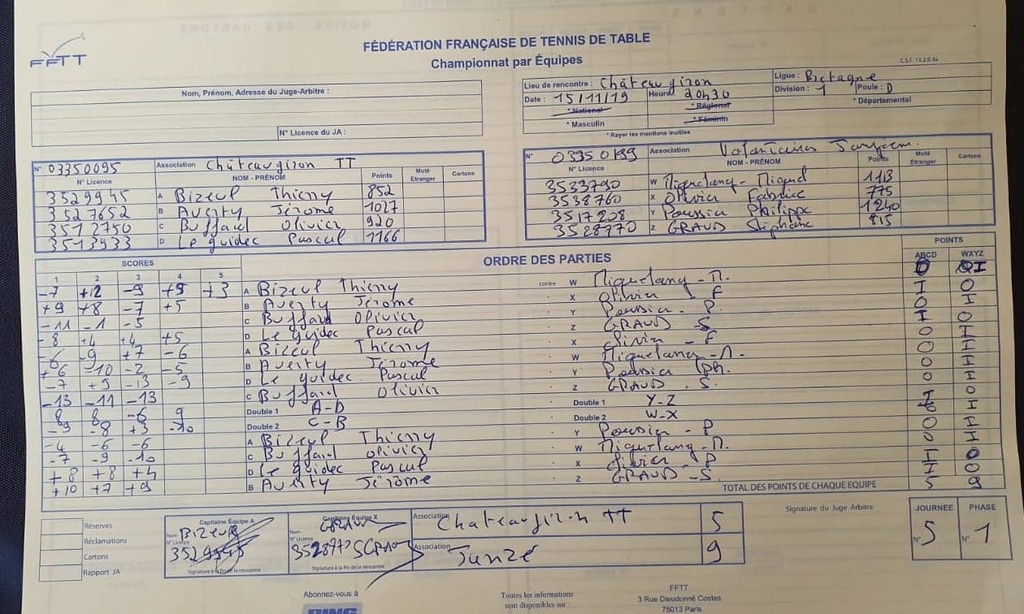 FFTT
FÉDÉRATION FRANÇAISE DE TENNIS DE TABLE
Championnat par Équipes
Nom, Prénom, Adresse du Juge-Arbitre :
N° Licence du JA :
Lieu de rencontre : Châteaugiron
Ligue : Bretagne
Date : 15/11/19 Heure 20h30
Division : 1 Poule : D
* National * Régional * Départemental
* Masculin * Féminin
* Rayer les mentions inutiles
N° 03350095 Association Châteaugiron TT
N° Licence NOM - PRÉNOM Points Muté Etranger Cartons
3529945 A Bizeul Thierry 852
3527652 B Averty Jérôme 1027
3512750 C Buffard Olivier 920
3513933 D Le guidec Pascal 1166
N° Association
N° Licence NOM - PRÉNOM Points Muté Etranger Cartons
3533790 W Miguel 1113
3538760 X Olivier Fabrice 775
3517208 Y Poussin Philippe 1240
3528770 Z GRAUD Stéphane 815
SCORES ORDRE DES PARTIES POINTS
1 2 3 4 5 ABCD WXYZ
-7 +12 -9 +9 +3 A Bizeul Thierry contre W M.
+9 +8 -7 +5 B Averty Jérôme X Olivier F I O
-11 -1 -5 C Buffard Olivier Y Poussin P. O I
-8 +4 +4 +5 D Le guidec Pascal Z GRAUD S I O
-6 -9 +7 -6 A Bizeul Thierry X Olivier F O I
+6 -10 -2 -5 B Averty Jérôme W M. O I
-7 +9 -13 -9 D Le guidec Pascal Y Poussin Ph. O I
-13 -11 -13 C Buffard Olivier Z GRAUD S. O I
8 8 -6 9 Double 1 A-D Double 1 Y-Z
-9 -8 +3 -10 Double 2 C-B Double 2 W-X
-4 -6 -6 A Bizeul Thierry Y Poussin P O I
-7 -9 -10 C Buffard Olivier W M. O I
+8 +8 +4 D Le guidec Pascal X Olivier I O
+10 +7 +9 B Averty Jérôme Z GRAUD S. I O
TOTAL DES POINTS DE CHAQUE EQUIPE 5 9
Réserves
Réclamations
Cartons
Rapport JA
Capitaine Équipe A
Nom Bizeul
N° Licence 3529945
Signature à la fin de la rencontre
Capitaine Équipe X
Nom GRAUD
N° Licence 3528770
Signature à la fin de la rencontre
Association Chateaugiron TT 5
Association Janzé 9
Signature du Juge Arbitre
JOURNÉE PHASE
N° 5 N° 1
Abonnez-vous à
PING
Toutes les informations
sont disponibles sur :
FFTT
3 Rue Dieudonné Costes
75013 Paris